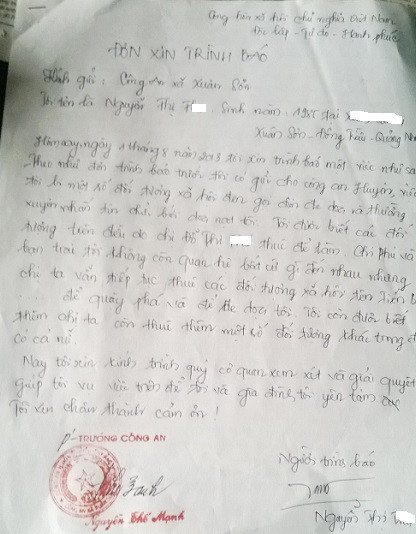 Cộng hòa xã hội chủ nghĩa Việt Nam
Độc lập - Tự do - Hạnh phúc
ĐƠN XIN TRÌNH BÁO
Kính gửi: Công An xã Xuân Sơn
Tôi tên là Nguyễn Thị T Sinh năm, 1987 tại
Xuân Sơn - Đông Triều - Quảng N
Hôm nay, ngày 1 tháng 8 năm tôi xin trình báo một việc như sa
Theo như đơn trình báo trước tôi có gửi cho công an Huyện, việc
tôi bị một số đối tượng xã hội đen gọi điện đe dọa và thường
xuyên nhắn tin chửi bới dọa nạt tôi. Tôi được biết các đối
tượng trên đều do chị Đỗ Thị thuê để làm. Chị Phi và
bạn trai tôi không còn quan hệ bất cứ gì đến nhau nhưng
chị ta vẫn tiếp tục thuê các đối tượng xã hội
để quấy phá và đe dọa tôi. Tôi còn được biết
thêm chị ta còn thuê thêm một số đối tượng khác trong đ
có cả nữ.
Nay tôi xin kính trình quý cơ quan xem xét và giải quyết
giúp tôi vụ việc trên để tôi và gia đình tôi yên tâm
Tôi xin chân thành cảm ơn!
P. TRƯỞNG CÔNG AN
Người trình báo
Nguyễn Thế Mạnh
Nguyễn Thị